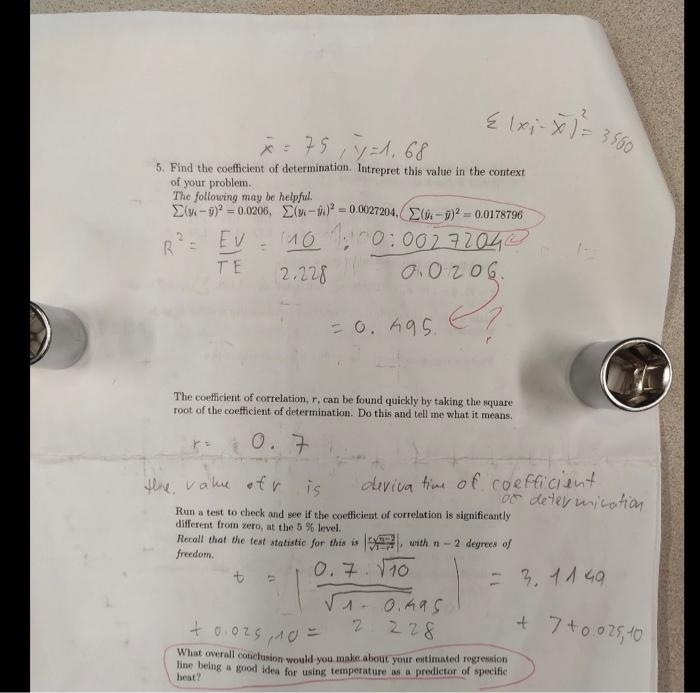 Σ (xi - x̄)² = 3500
x̄ = 75, ȳ = 1.68
5. Find the coefficient of determination. Intrepret this value in the context
of your problem.
The following may be helpful.
∑(yᵢ − ȳ)² = 0.0206, ∑(yᵢ − ŷᵢ)² = 0.0027204, ∑(ŷᵢ − ȳ)² = 0.0178796
R² = EV/TE = 10/2.228 0.0027204/0.0206
= 0.495 ?
The coefficient of correlation, r, can be found quickly by taking the square
root of the coefficient of determination. Do this and tell me what it means.
r = 0.7
the value of r is derivative of coefficient
of determination
Run a test to check and see if the coefficient of correlation is significantly
different from zero, at the 5 % level.
Recall that the test statistic for this is |r√n−2/√1−r²|, with n − 2 degrees of
freedom.
t = | 0.7 · √10 / √1 - 0.495 | = 3.1149
t 0.025,10 = 2.228 t > t 0.025,10
What overall conclusion would you make about your estimated regression
line being a good idea for using temperature as a predictor of specific
heat?